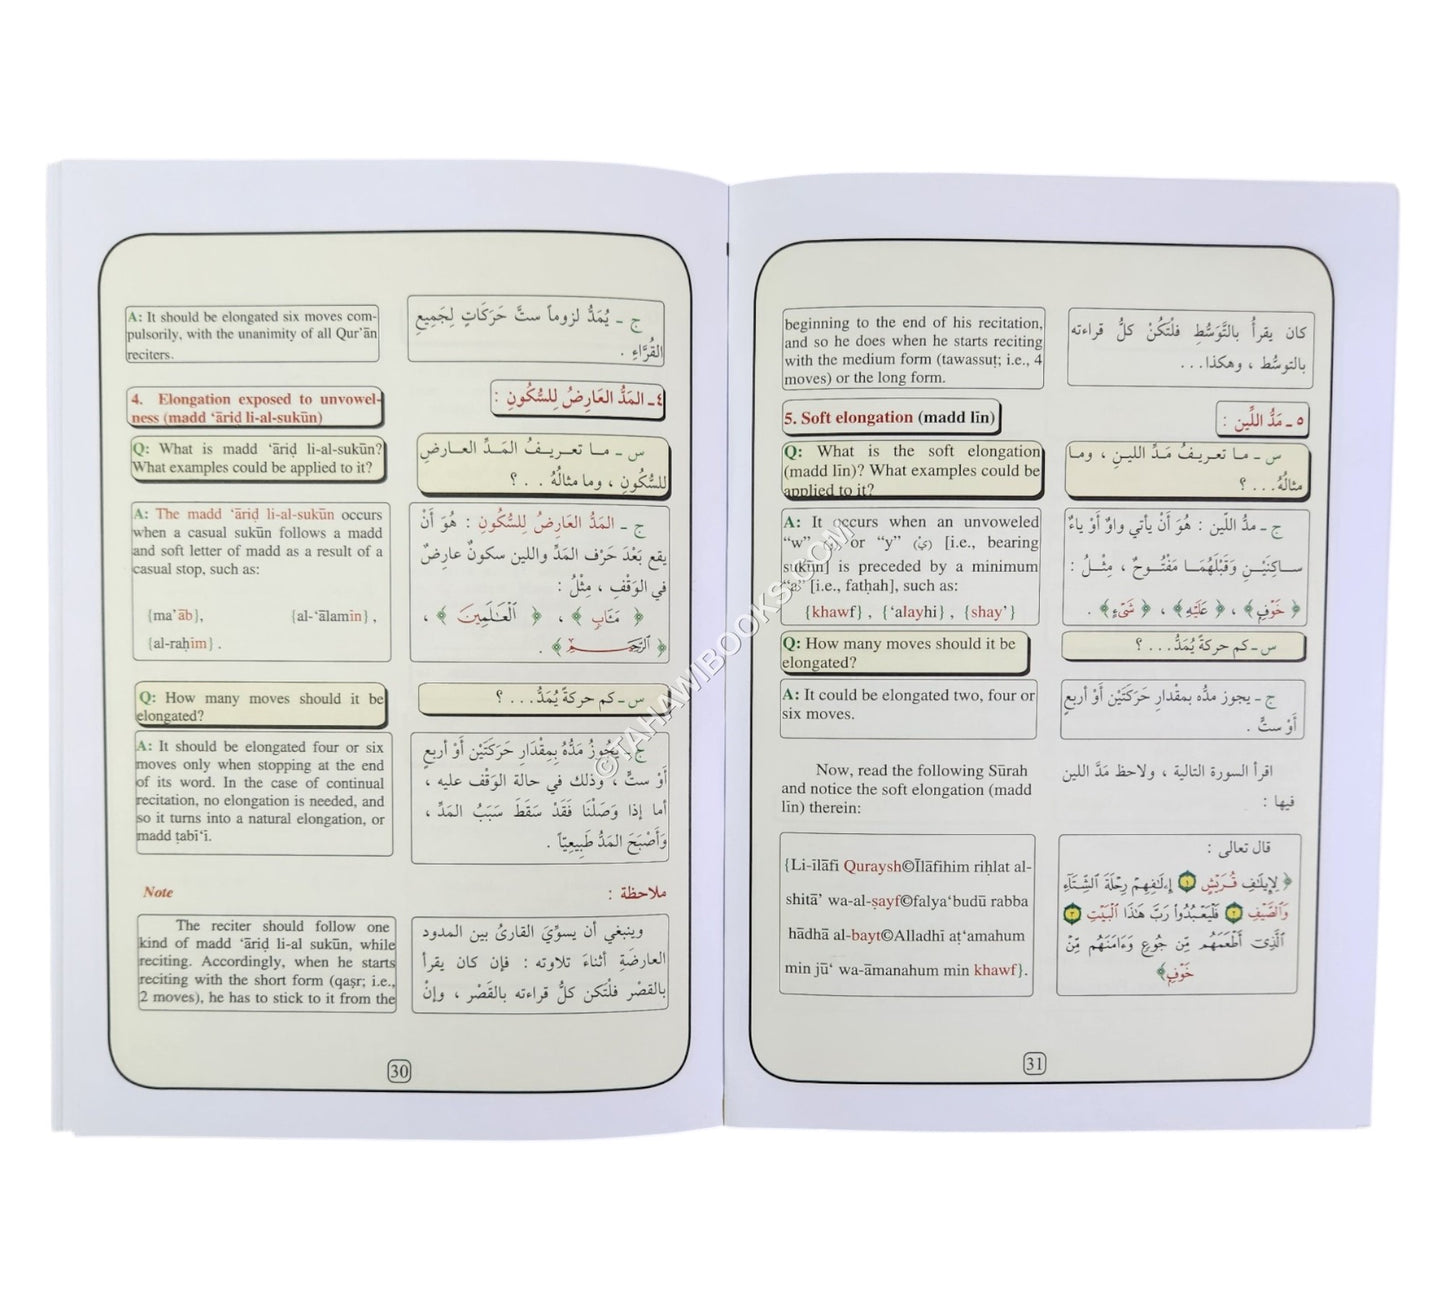 A: It should be elongated six moves com-
pulsorily, with the unanimity of all Qur’ān
reciters.
ج ـ يُمَدُّ لزوماً ستَّ حَرَكَاتٍ لِجَمِيعِ
القُرَّاءِ .
4. Elongation exposed to unvowel-
ness (madd ‘āriḍ li-al-sukūn)
٤ـ المَدُّ العَارِضُ لِلسُّكُونِ :
Q: What is madd ‘āriḍ li-al-sukūn?
What examples could be applied to it?
س ـ مـا تعـريـفُ المَـدِّ العـارضِ
للسُّكُونِ ، وما مثالُهُ . . ؟
A: The madd ‘āriḍ li-al-sukūn occurs
when a casual sukūn follows a madd
and soft letter of madd as a result of a
casual stop, such as:
{ma’āb}, {al-‘ālamīn} ,
{al-raḥim} .
ج ـ المَدُّ العَارِضُ لِلسُّكُونِ : هُوَ أَنْ
يقع بَعْدَ حَرْف المَدِّ واللين سكونٌ عارضٌ
في الوَقْفِ ، مِثْلُ :
﴿ مَـَٔابٍ ﴾ ، ﴿ ٱلْعَـٰلَمِينَ ﴾ ،
﴿ ٱلرَّحِيـــمِ ﴾ .
Q: How many moves should it be
elongated?
س ـ كم حركةً يُمَدُّ. . . ؟
A: It should be elongated four or six
moves only when stopping at the end
of its word. In the case of continual
recitation, no elongation is needed, and
so it turns into a natural elongation, or
madd ṭabī‘ī.
ج ـ يَجُوزُ مَدُّهُ بِمِقْدَارِ حَرَكَتَيْن أَوْ أربعِ
أَوْ ستٍّ ، وذلك في حالة الوَقْف عليه ،
أما إذا وَصَلْنَا فَقَدْ سَقَطَ سَبَبُ المَدِّ ،
وَأَصْبَحَ المَدُّ طَبِيعِيّاً .
Note
ملاحظة :
The reciter should follow one
kind of madd ‘āriḍ li-al sukūn, while
reciting. Accordingly, when he starts
reciting with the short form (qaṣr; i.e.,
2 moves), he has to stick to it from the
وينبغي أن يسوِّيَ القارئُ بين المدود
العارضَةِ أثناءَ تلاوته : فإن كان يقرأ
بالقصْر فلْتَكن كلُّ قراءته بالقَصْر ، وإنْ
30
beginning to the end of his recitation,
and so he does when he starts reciting
with the medium form (tawassuṭ; i.e., 4
moves) or the long form.
كان يقرأُ بالتَّوَسُّطِ فلْتَكُنْ كلُّ قراءته
بالتوسُّط ، وهكذا. . .
5. Soft elongation (madd līn)
٥ ـ مَدُّ اللِّين :
Q: What is the soft elongation
(madd līn)? What examples could be
applied to it?
س ـ ما تعريفُ مَدِّ اللينِ ، وما
مثالُهُ. . . ؟
A: It occurs when an unvoweled
“w” (و) or “y” (ي) [i.e., bearing
sukūn] is preceded by a minimum
“a” [i.e., fatḥah], such as:
{khawf} , {‘alayhi} , {shay’}
ج ـ مدُّ اللّين : هُوَ أَنْ يأتي واوٌ أَوْ ياءٌ
سـاكِنَيْـنِ وَقَبْلَهُمَـا مَفْتُـوحٌ ، مِثْـلُ :
﴿ خَوْفٍ﴾ ، ﴿ عَلَيْهِ ﴾ ، ﴿ شَىْءٍ﴾ .
Q: How many moves should it be
elongated?
س ـ كم حركةً يُمَدُّ. . . ؟
A: It could be elongated two, four or
six moves.
ج ـ يجوز مدُّه بمقْدارِ حَرَكَتَيْن أَوْ أربعٍ
أَوْ ستٍّ .
Now, read the following Sūrah
and notice the soft elongation (madd
līn) therein:
اقرأ السورة التالية ، ولاحظ مَدَّ اللين
فيها :
{Li-ilāfi Quraysh©Īlāfihim riḥlat al-
shitā’ wa-al-ṣayf©falya‘budū rabba
hādhā al-bayt©Alladhī aṭ‘amahum
min jū‘ wa-āmanahum min khawf}.
قال تعالى :
﴿ لِإِيلَـٰفِ قُرَيْشٍ ١ إِۦلَـٰفِهِمْ رِحْلَةَ ٱلشِّتَآءِ
وَٱلصَّيْفِ ٢ فَلْيَعْبُدُواْ رَبَّ هَـٰذَا ٱلْبَيْتِ ٣
ٱلَّذِىٓ أَطْعَمَهُم مِّن جُوعٍ وَءَامَنَهُم مِّنْ
خَوْفٍ﴾
31
©TAHAWIBOOKS.COM